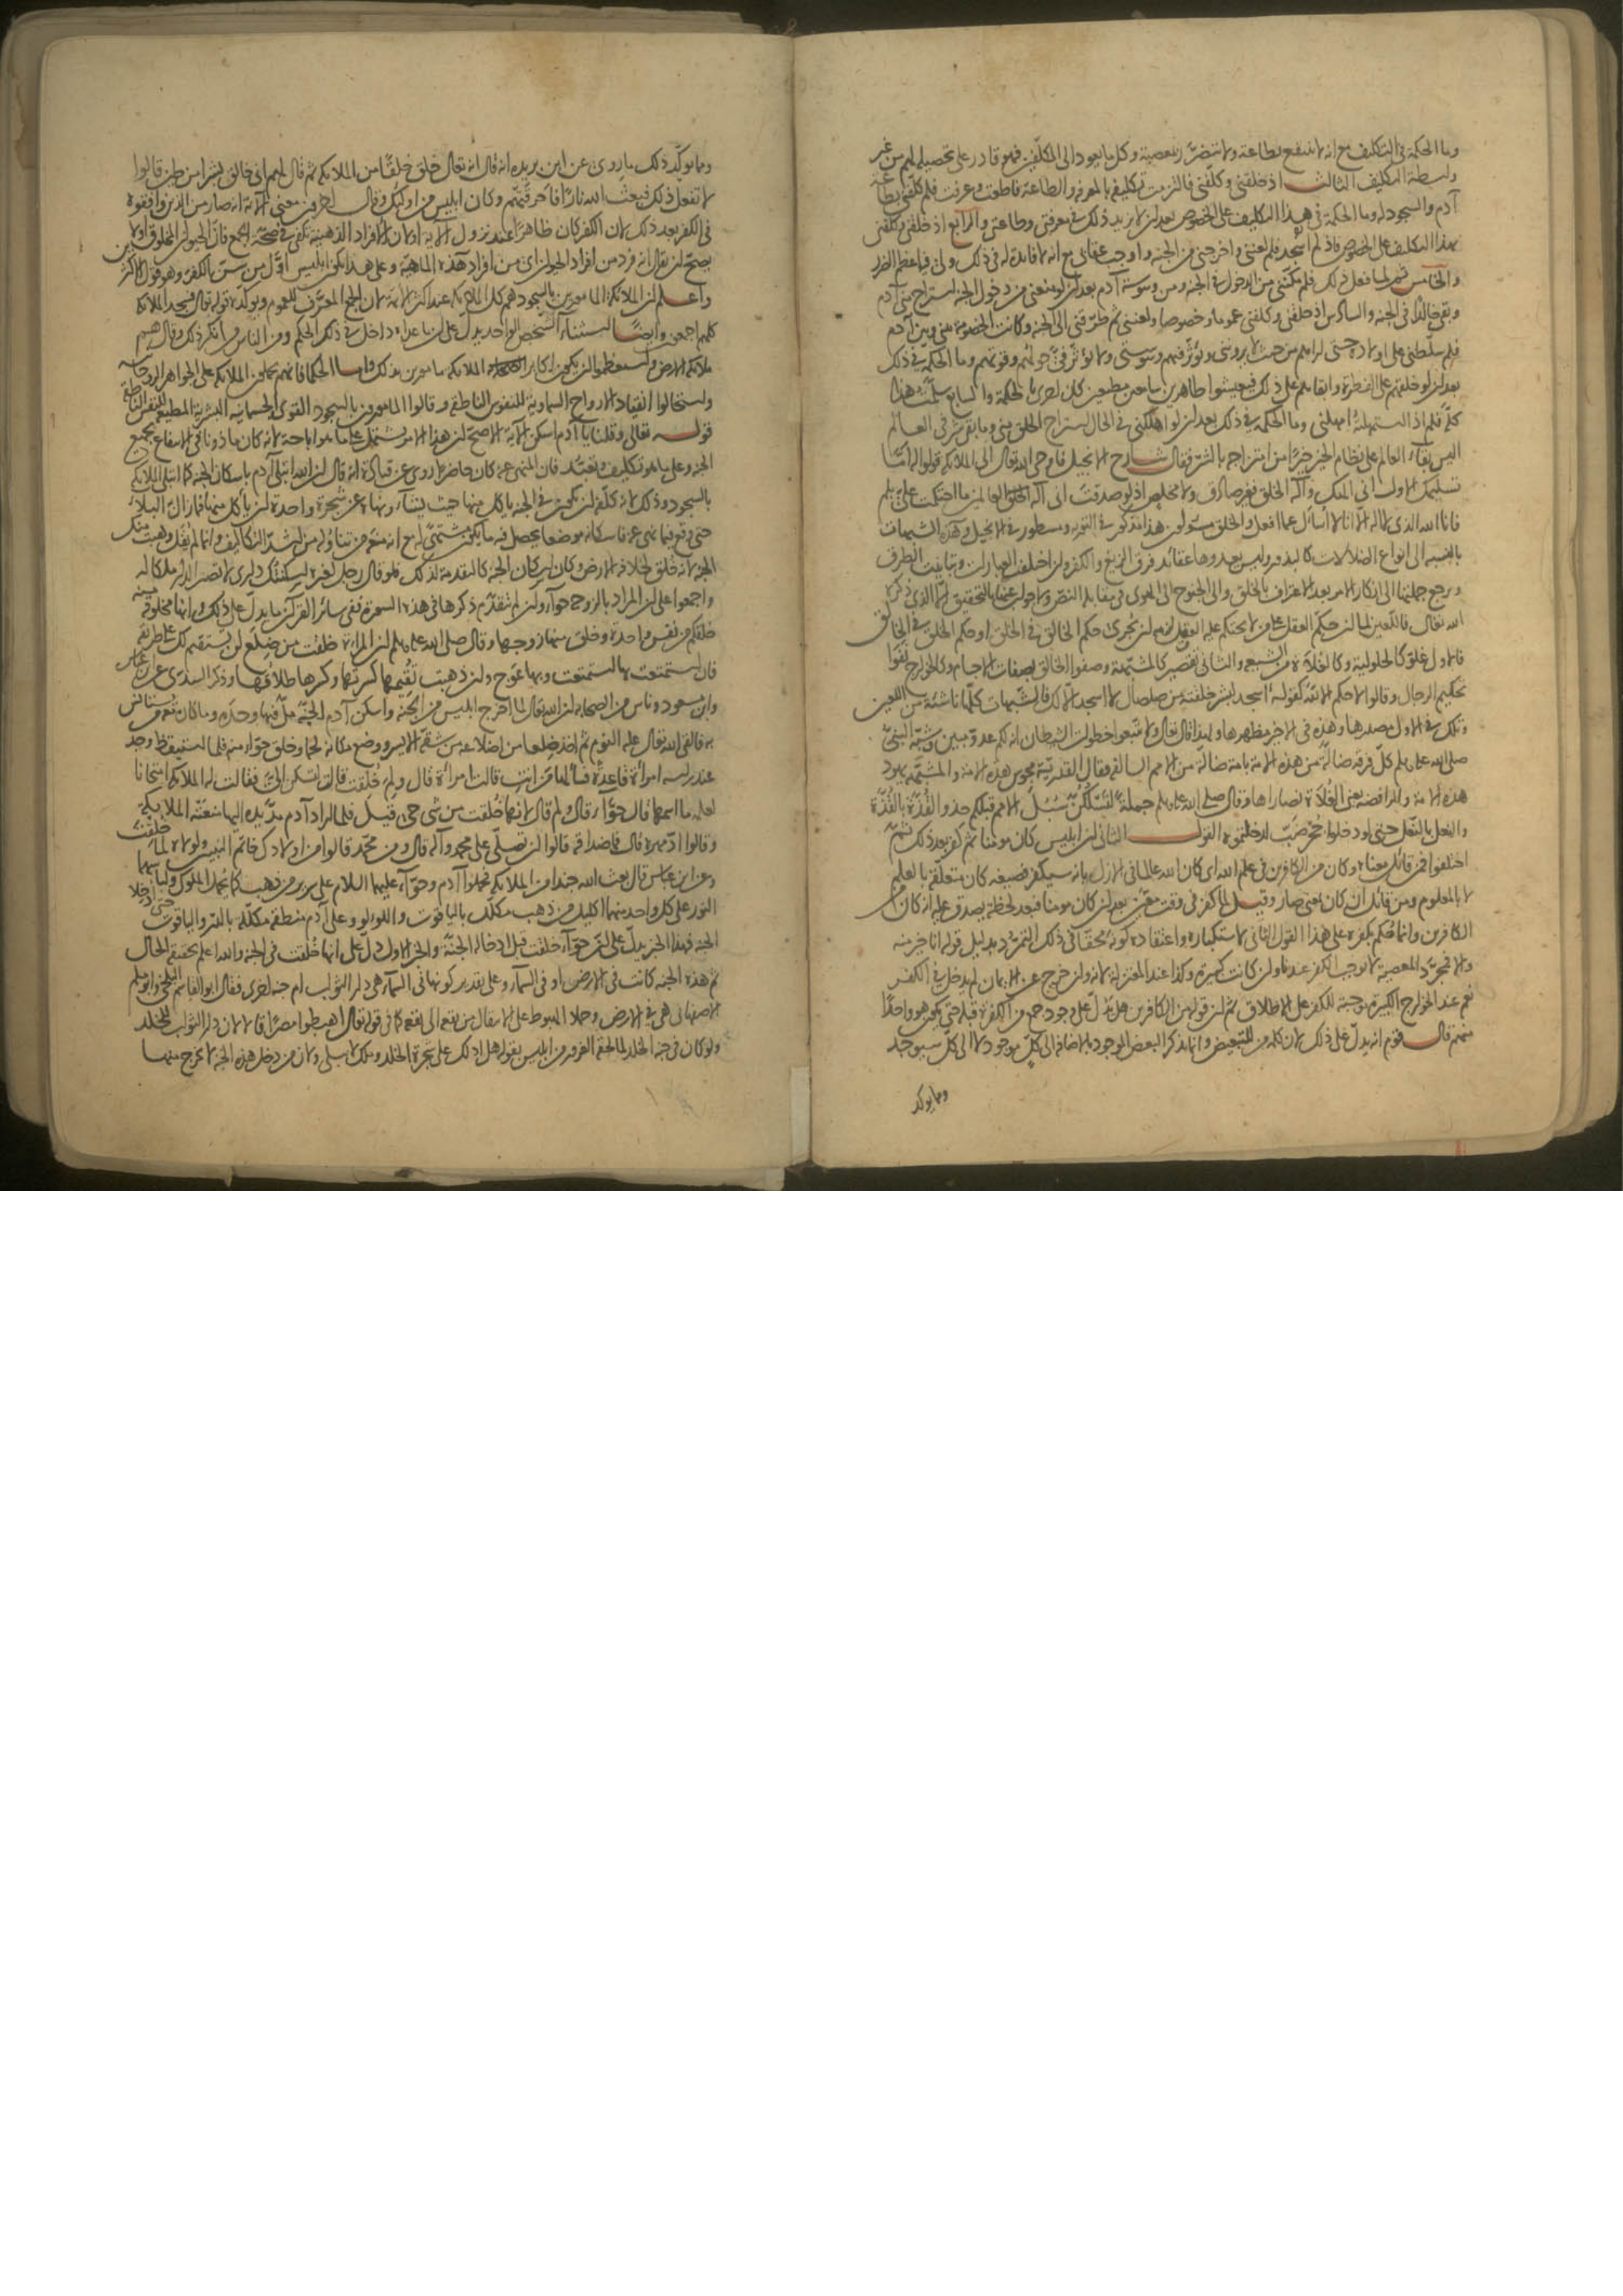 وما الحكمة في التكليف مع انه لا ينتفع بطاعة ولا يتضرر بمعصية وكل ما يعود الى المكلفين فهو قادر على تحصيله لهم من غير
واسطة التكليف الثالث اذ خلقني وكلفني فالتزمت تكليفه بالمعرفة والطاعة فاطعت وعرفت فلم كلفني بطاعة
آدم والسجود له وما الحكمة في هذا التكليف على الخصوص بعد ان لا يزيد ذلك في معرفتي وطاعتي والرابع اذ خلقني وكلفني
بهذا التكليف على الخصوص فاذ لم اسجد فلم لعنني واخرجني من الجنة واوجب عقابي مع انه لا فائدة له في ذلك ولي فيه اعظم الضرر
والخامس ثم لما فعل ذلك فلم مكنني من الدخول في الجنة ومن وسوسة آدم بعد ان لو منعني من دخول الجنة استراح مني آدم
وبقي خالدا في الجنة والسادس اذ خلقني وكلفني عموما وخصوصا ولعنني ثم طرقني الى الجنة وكانت الخصومة بيني وبين آدم
فلم سلطني على اولاده حتى اراهم من حيث لا يرونني ويؤثر فيهم وسوستي ولا يؤثر في حولهم وقوتهم وما الحكمة في ذلك
بعد ان لو خلقهم على الفطرة وابقاهم على ذلك فيعيشوا طاهرين سامعين مطيعين كان احرى بالحكمة والسابع سلمت هذا
كله فلم اذ استمهلته امهلني وما الحكمة في ذلك بعد ان لو اهلكني في الحال استراح الخلق مني وما بقي شر في العالم
اليس بقاء العالم على نظام الخير خيرا من امتزاجه بالشر فقال شارح الانجيل فاوحى الله تعالى الى الملائكة قولوا له اما
تسليمك الاول اني الهك وآله الخلق فغير صادق ولا مخلص اذ لو صدقت اني آله العالمين ما احتكمت علي بلم
فانا الله الذي لا اله الا انا لا أسأل عما افعل والخلق مسئولون هذا مذكور في التورية ومسطور في الانجيل وهذه الشبهات
بالنسبة الى انواع الضلالات كالبذور وليس يعدوها عقائد فرق الزيغ والكفر وان اختلفت العبارات وتباينت الطرق
ويرجع جملتها الى انكار الامر بعد الاعتراف بالخلق والى الجنوح الى الهوى في مقابلة النص والجواب عنها بالتحقيق الذي ذكره
الله تعالى فاللعين لما ان حكم العقل على من لا يحتكم عليه العقل لزمه ان يجري حكم الخالق في الخلق او حكم الخلق في الخالق
فالاول غلو كالحلولية وكالغلاة من الشيعة والثاني تقصير كالمشبهة وصفوا الخالق بصفات الاجسام وكالخوارج نفوا
تحكيم الرجال وقالوا لا حكم الا لله كقوله أأسجد لبشر خلقته من صلصال لا اسجد الا لك فالشبهات كلها ناشئة من اللعين
وتلك في الاول مصدرها وهذه في الاخر مظهرها ولهذا قال تعالى ولا تتبعوا خطوات الشيطان انه لكم عدو مبين وشبه النبي
صلى الله عليه وسلم كل فرقة ضالة من هذه الامة بامة ضالة من الامم السالفة فقال القدرية مجوس هذه الامة والمشبهة يهود
هذه الامة والرافضة يعني الغلاة نصاراها وقال صلى الله عليه وسلم جملة لتسلكن سبل الامم قبلكم حذو القذة بالقذة
والنعل بالنعل حتى لو دخلوا جحر ضب لدخلتموه القول الثاني ان ابليس كان مؤمنا ثم كفر بعد ذلك ثم
اختلفوا فمن قائل معناه وكان من الكافرين في علم الله اي كان الله عالما في الازل بانه سيكفر فصيغة كان متعلقة بالعلم
لا بالمعلوم ومن قائل ان كان بمعنى صار وقيل لما كفر في وقت معين بعد ان كان مؤمنا فبعد لحظة يصدق عليه انه كان من
الكافرين وانما حكم بكفره على هذا القول الثاني لاستكباره واعتقاده كونه محقا في ذلك التمرد بدليل قوله انا خير منه
والا فمجرد المعصية لا توجب الكفر عندنا وان كانت كبيرة وكذا عند المعتزلة لانه وان خرج عن الايمان لم يدخل في الكفر
نعم عند الخوارج الكبيرة موجبة للكفر على الاطلاق ثم ان قوله من الكافرين هل يدل على وجود جمع من الكفرة قبله حتى يكون هو واحدا
منهم قال قوم انه يدل على ذلك لان كلمة من للتبعيض وانما يذكر البعض الموجود بالاضافة الى كل موجود لا الى كل سيوجد
ومما يؤكد
ومما يؤكد ذلك ما روي عن ابن بريدة انه قال ان الله تعالى خلق خلقا من الملائكة ثم قال لهم اني خالق بشرا من طين قالوا
لا نفعل ذلك فبعث الله نارا فاحرقتهم وكان ابليس من اولئك وقال آخرون معنى الآية انه صار من الذين وافقوه
في الكفر بعد ذلك لان الكفر كان ظاهرا عند نزول الآية او لان الافراد الذهنية تكفي في صحة الجمع فان الحيوان المخلوق اولا
يصح ان يقال انه فرد من افراد الحيوان اي من افراد هذه الماهية وعلى هذا يكون ابليس اول من سن الكفر وهو قول الاكثرين
واعلم ان الملائكة المأمورين بالسجود هم كل الملائكة عند اكثر الائمة لان الجمع المعرف للعموم ويؤكده قوله تعالى فسجد الملائكة
كلهم اجمعون وايضا استثناء الشخص الواحد يدل على ان ما عداه داخل في ذلك الحكم ومن الناس من انكر ذلك وقال هم
ملائكة الارض واستعظموا ان يكون اكابر الملائكة مأمورين بذلك واما الحكما فانهم يحملون الملائكة على الجواهر الروحانية
واستحالوا انقياد الارواح السماوية للنفوس الناطقة وقالوا المأمورون بالسجود القوى الجسمانية البشرية المطيعة للنفس الناطقة
قوله تعالى وقلنا يا آدم اسكن الآية الاصح ان هذا الامر مشتمل على ما هو اباحة لانه كان مأذونا في الانتفاع بجميع
الجنة وعلى ما هو تكليف وتعبد فان المنهي عنه كان حاضرا روي عن قتادة انه قال ان الله ابتلى آدم باسكان الجنة كما ابتلى الملائكة
بالسجود وذلك لانه كلفه ان يكون في الجنة يأكل منها حيث يشاء ونهاه عن شجرة واحدة ان يأكل منها فما زال به البلاء
حتى وقع فيما نهي عنه فاسكانه موضعا يحصل فيه ما يكون مشتهى له مع انه منعه من تناوله من اشد التكاليف وانما لم يقل وهبت منك
الجنة لانه خلق لخلافة الارض وكان اسكان الجنة كالتقدمة لذلك فلو قال رجل لغيره اسكنتك داري لا تصير الدار ملكا له
واجمعوا على ان المراد بالزوج حواء وان لم يتقدم ذكرها في هذه السورة ففي سائر القرآن ما يدل على ذلك وانها مخلوقة منه
خلقكم من نفس واحدة وخلق منها زوجها وقال صلى الله عليه وسلم ان المرأة خلقت من ضلع لن يستقيم لك على طريقة
فان استمتعت بها استمتعت وبها عوج وان ذهبت تقيمها كسرتها وكسرها طلاقها وذكر السدي عن ابن عباس
وابن مسعود وناس من الصحابة ان الله تعالى لما اخرج ابليس من الجنة واسكن آدم الجنة ظل فيها وحده وما كان معه من يستأنس
به فالقى الله تعالى عليه النوم ثم اخذ ضلعا من اضلاعه من شقه الايسر ووضع مكانه لحما وخلق حواء منه فلما استيقظ وجد
عند رأسه امرأة قاعدة فسألها من انت قالت امرأة قال ولم خلقت قالت لتسكن الي فقالت له الملائكة امتحانا
لعلمه ما اسمها قال حواء قالوا ولم قال لانها خلقت من شئ حي قيل فلما اراد آدم مد يده اليها منعته الملائكة
وقالوا أد مهرها قال فما صداقها قالوا ان تصلي على محمد وآله قال ومن محمد قالوا من اولادك خاتم النبيين ولولاه لما خلقت
وعن ابن عباس قال بعث الله جندا من الملائكة فحملوا آدم وحواء عليهما السلام على سرير من ذهب كما يحمل الملوك ولباسهما
النور على كل واحد منهما اكليل من ذهب مكلل بالياقوت واللؤلؤ وعلى آدم منطقة مكللة بالدر والياقوت حتى ادخلا
الجنة فهذا الخبر يدل على ان حواء خلقت قبل ادخاله الجنة والخبر الاول دل على انها خلقت في الجنة والله اعلم بحقيقة الحال
ثم هذه الجنة كانت في الارض او في السماء وعلى تقدير كونها في السماء هي دار الثواب ام جنة اخرى فقال ابو القاسم البلخي وابو مسلم
الاصفهاني هي في الارض وحملا الهبوط على الانتقال من بقعة الى بقعة كما في قوله تعالى اهبطوا مصرا قالا لان دار الثواب للخلد
ولو كان في جنة الخلد لما لحقه الغرور من ابليس بقوله هل ادلك على شجرة الخلد وملك لا يبلى ولان من دخل هذه الجنة لا يخرج منها